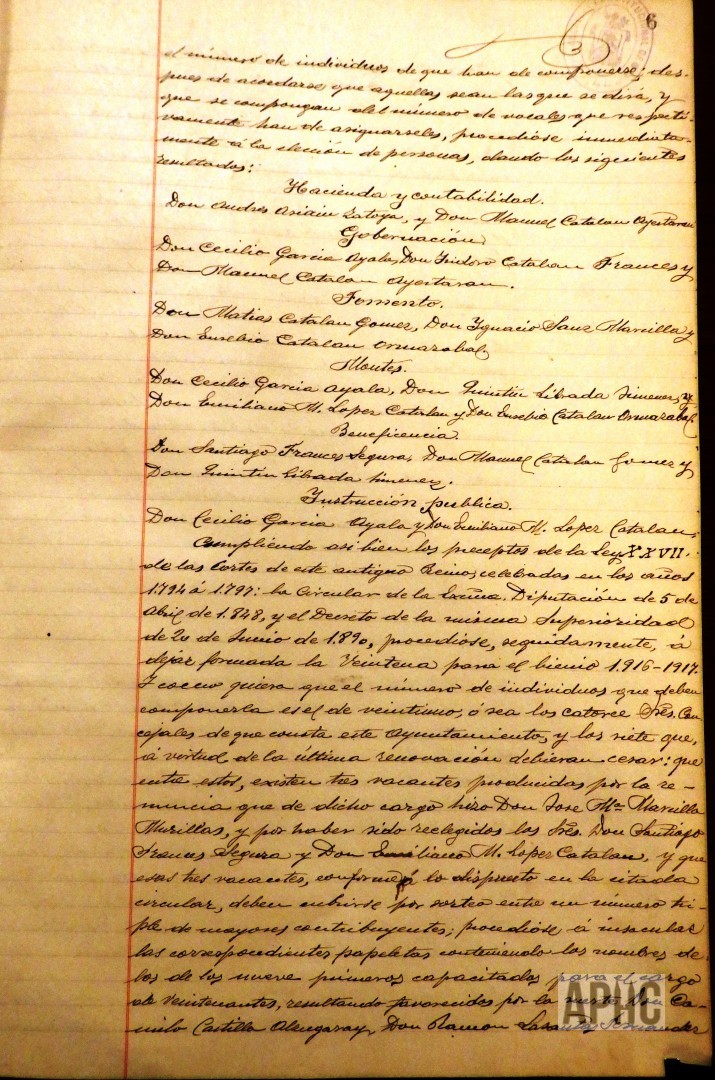 6
el número de individuos de que han de componerse; des-
pues de acordarse que aquellas sean las que se dirá, y
que se compongan del número de vocales que respecti-
vamente han de asignarseles, procediose inmediata-
mente á la elección de personas, dando los siguientes
resultados:
Hacienda y contabilidad.
Don Andrés Ariain Latoya, y Don Manuel Catalan Ayestaran
Gobernación
Don Cecilio Garcia Ayala, Don Isidoro Catalan Frances y
Don Manuel Catalan Ayestaran.
Fomento.
Don Matias Catalan Gomez, Don Ygnacio Sanz Marcilla y
Don Eusebio Catalan Ormazabal
Montes.
Don Cecilio Garcia Ayala, Don Quintin Librada Jimenez, y
Don Emiliano M. Lopez Catalan y Don Eusebio Catalan Ormazabal
Beneficencia.
Don Santiago Frances Segura, Don Manuel Catalan Gomez y
Don Quintin Librada Jimenez.
Instrucción publica.
Don Cecilio Garcia Ayala y Don Emiliano M. Lopez Catalan,
Cumpliendo asi bien los preceptos de la Ley XXVII
de las Cortes de este antiguo Reino celebradas en los años
1.794 á 1.797: la Circular de la Excma. Diputación de 5 de
Abril de 1.848, y el Decreto de la misma Superioridad
de 20 de Junio de 1.890, procediose, seguidamente, á
dejar formada la Veintena para el bienio 1.916-1917.
Y como quiera que el número de individuos que deben
componerla es el de veintiuno, ó sea los catorce Sres. Con-
cejales de que consta este Ayuntamiento, y los siete que,
á virtud de la última renovación debieran cesar: que
entre estos, existen tres vacantes producidas por la re-
nuncia que de dicho cargo hizo Don Jose Mª Marcilla
Murillas, y por haber sido reelegidos los Sres. Don Santiago
Frances Segura y Don Emiliano M. Lopez Catalan, y que
esas tres vacantes, conforme á lo dispuesto en la citada
circular, deben cubrirse por sorteo entre un número tri-
ple de mayores contribuyentes; procediose á insacular
las correspondientes papeletas conteniendo los nombres de
los de los nueve primeros capacitados para el cargo
de Veintenantes, resultando favorecidos por la suerte, Don Ca-
milo Castillo Don Ramon
APHC